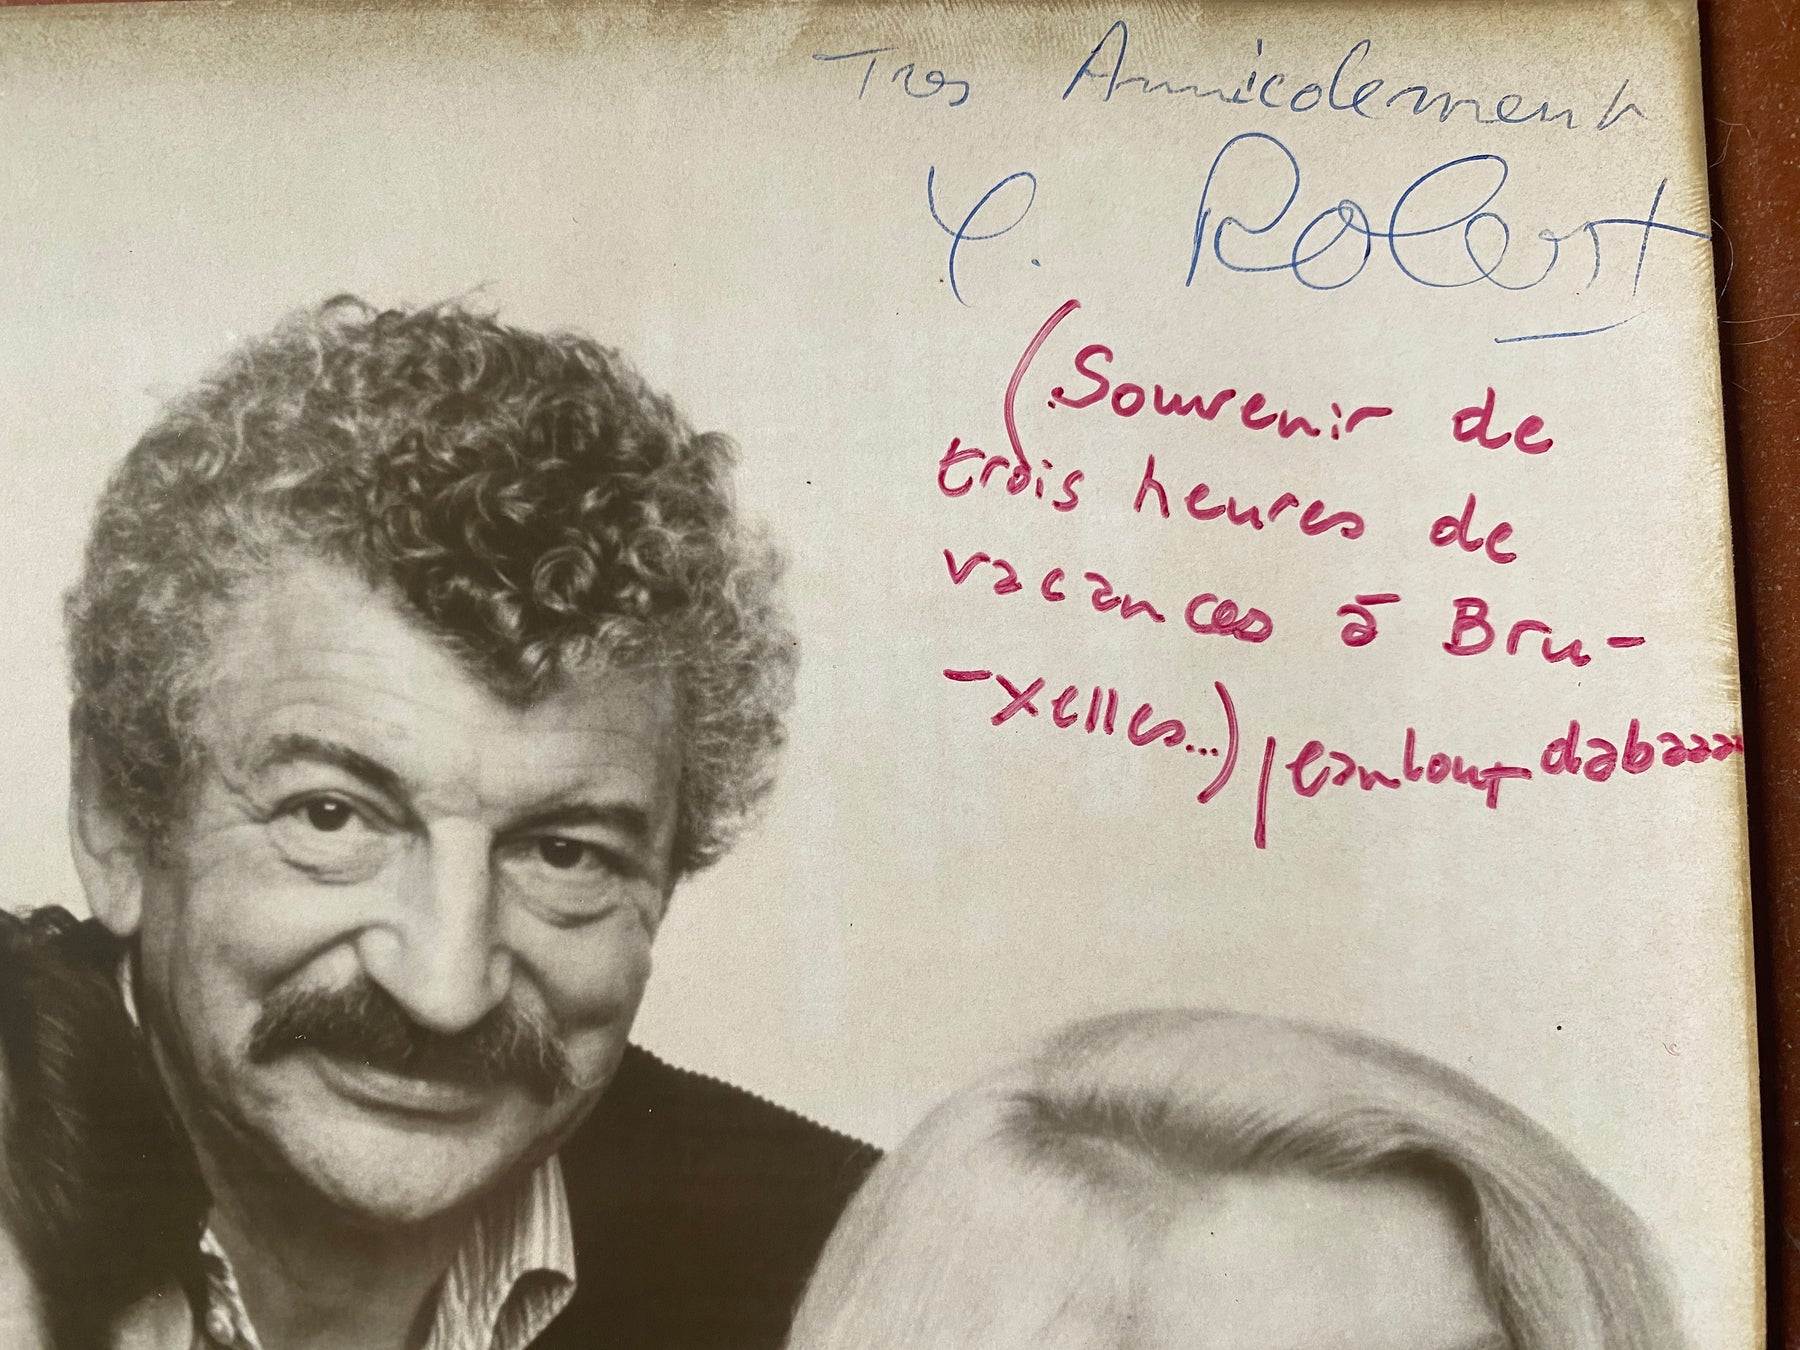 Tres Amicalement
Y. Robert
(Souvenir de
trois heures de
vacances à Bru-
-xelles...) jean lout dabaaaa